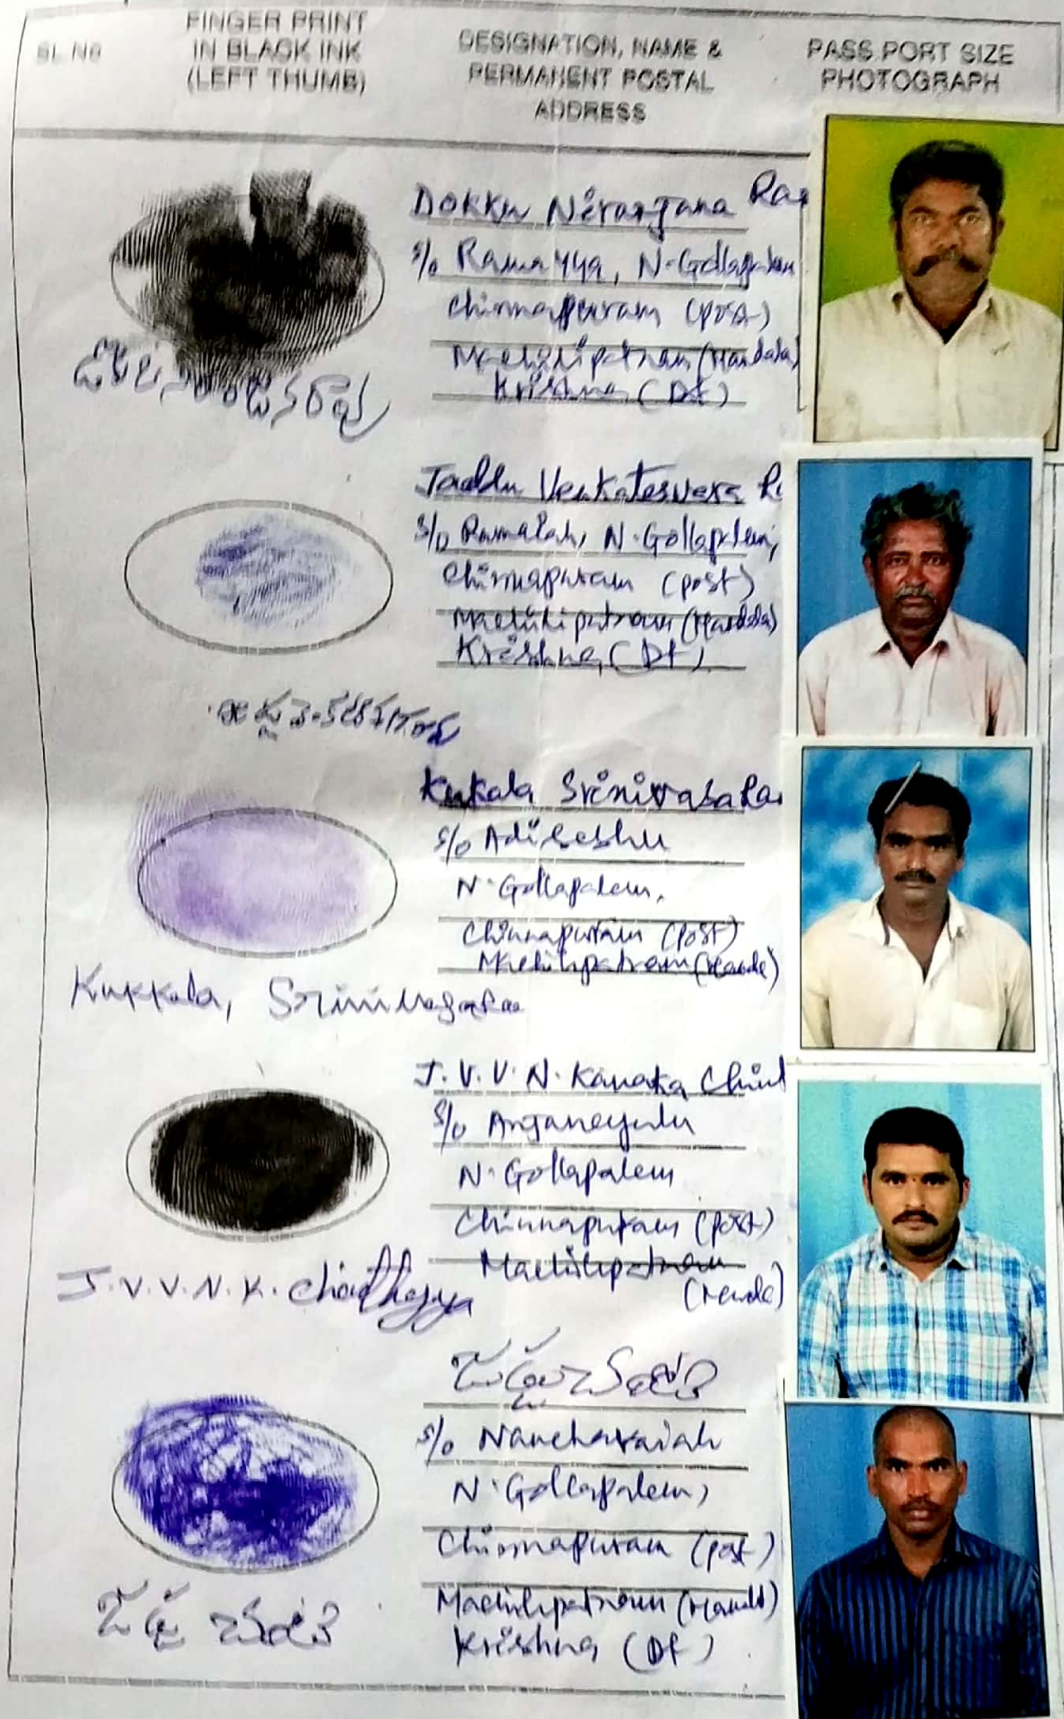 SL.No
FINGER PRINT
IN BLACK INK
(LEFT THUMB)
DESIGNATION, NAME &
PERMANENT POSTAL
ADDRESS
PASS PORT SIZE
PHOTOGRAPH
Dokku Niranjana Rao
S/o Ramayya, N.Gollapalem
Chinnapuram (post)
Machilipatnam (Mandala)
Krishna (Dt)
Jaddu Venkateswara
S/o Ramaiah, N.Gollapalem,
Chinnapuram (post)
Machilipatnam (Mandala)
Krishna (Dt)
Kukala Srinivasa Rao
S/o Adiseshu
N.Gollapalem,
Chinnapuram (post)
Machilipatnam (Mandal)
Kukkala, Srinivasarao
J.V.V.N. Kanaka Chint
S/o Anjaneyulu
N.Gollapalem
Chinnapuram (post)
Machilipatnam
(Mandal)
J.V.V.N.K.
S/o Nancharaiah
N.Gollapalem,
Chinnapuram (post)
Machilipatnam (Mandal)
Krishna (Dt)